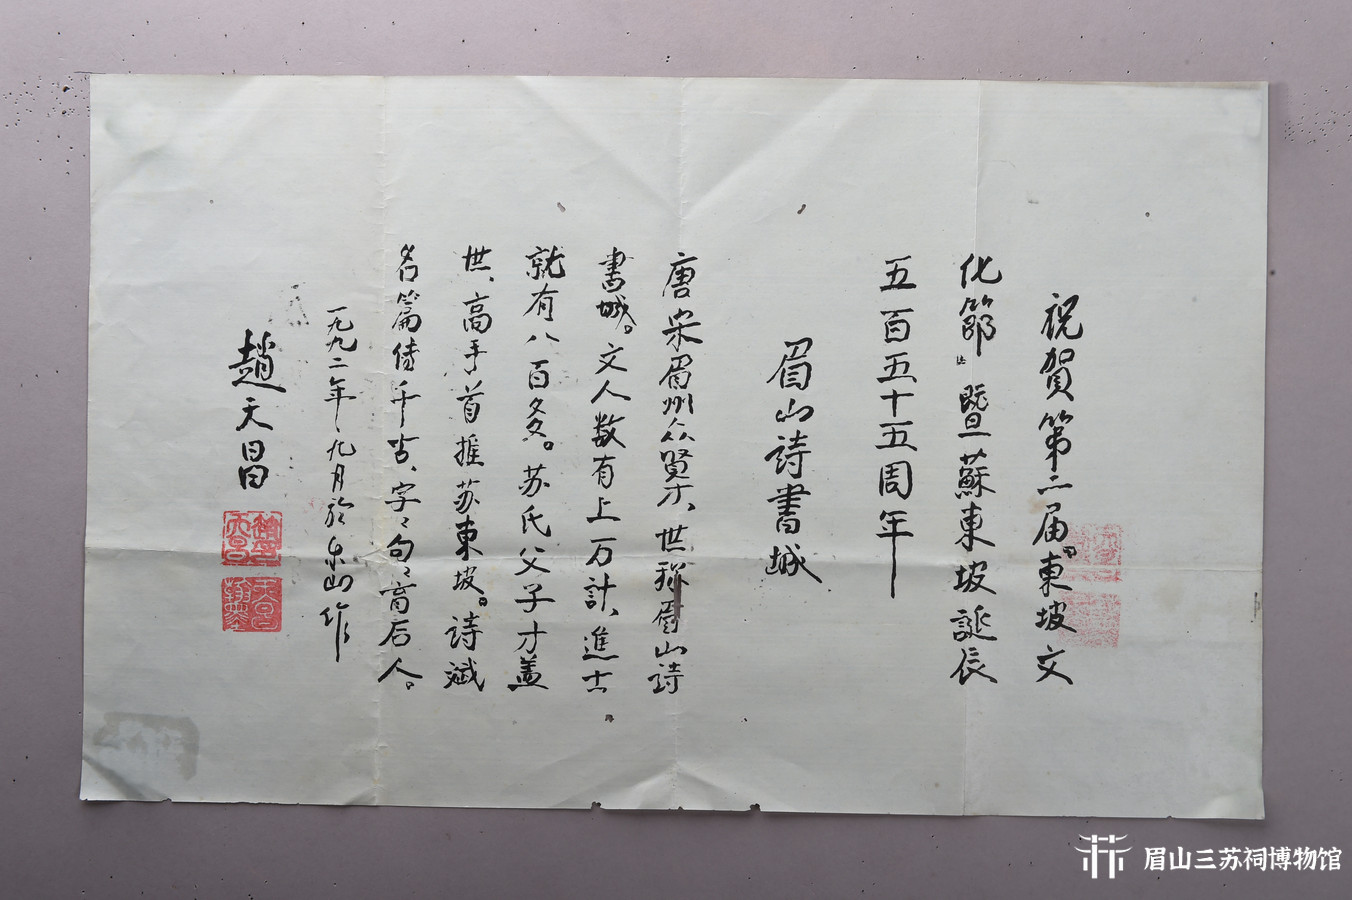 祝贺第二届。東坡文
化節暨蘇東坡誕辰
五百五十五周年
眉山詩書城
唐宋眉州众贤才、世称眉山詩
書城。文人数有上万計、進士
就有八百多。苏氏父子才盖
世、高手首推苏東坡。詩斌
名篇倍千古、字々句々育后人。
一九九二年九月於乐山作
趙天昌
眉山三苏祠博物馆